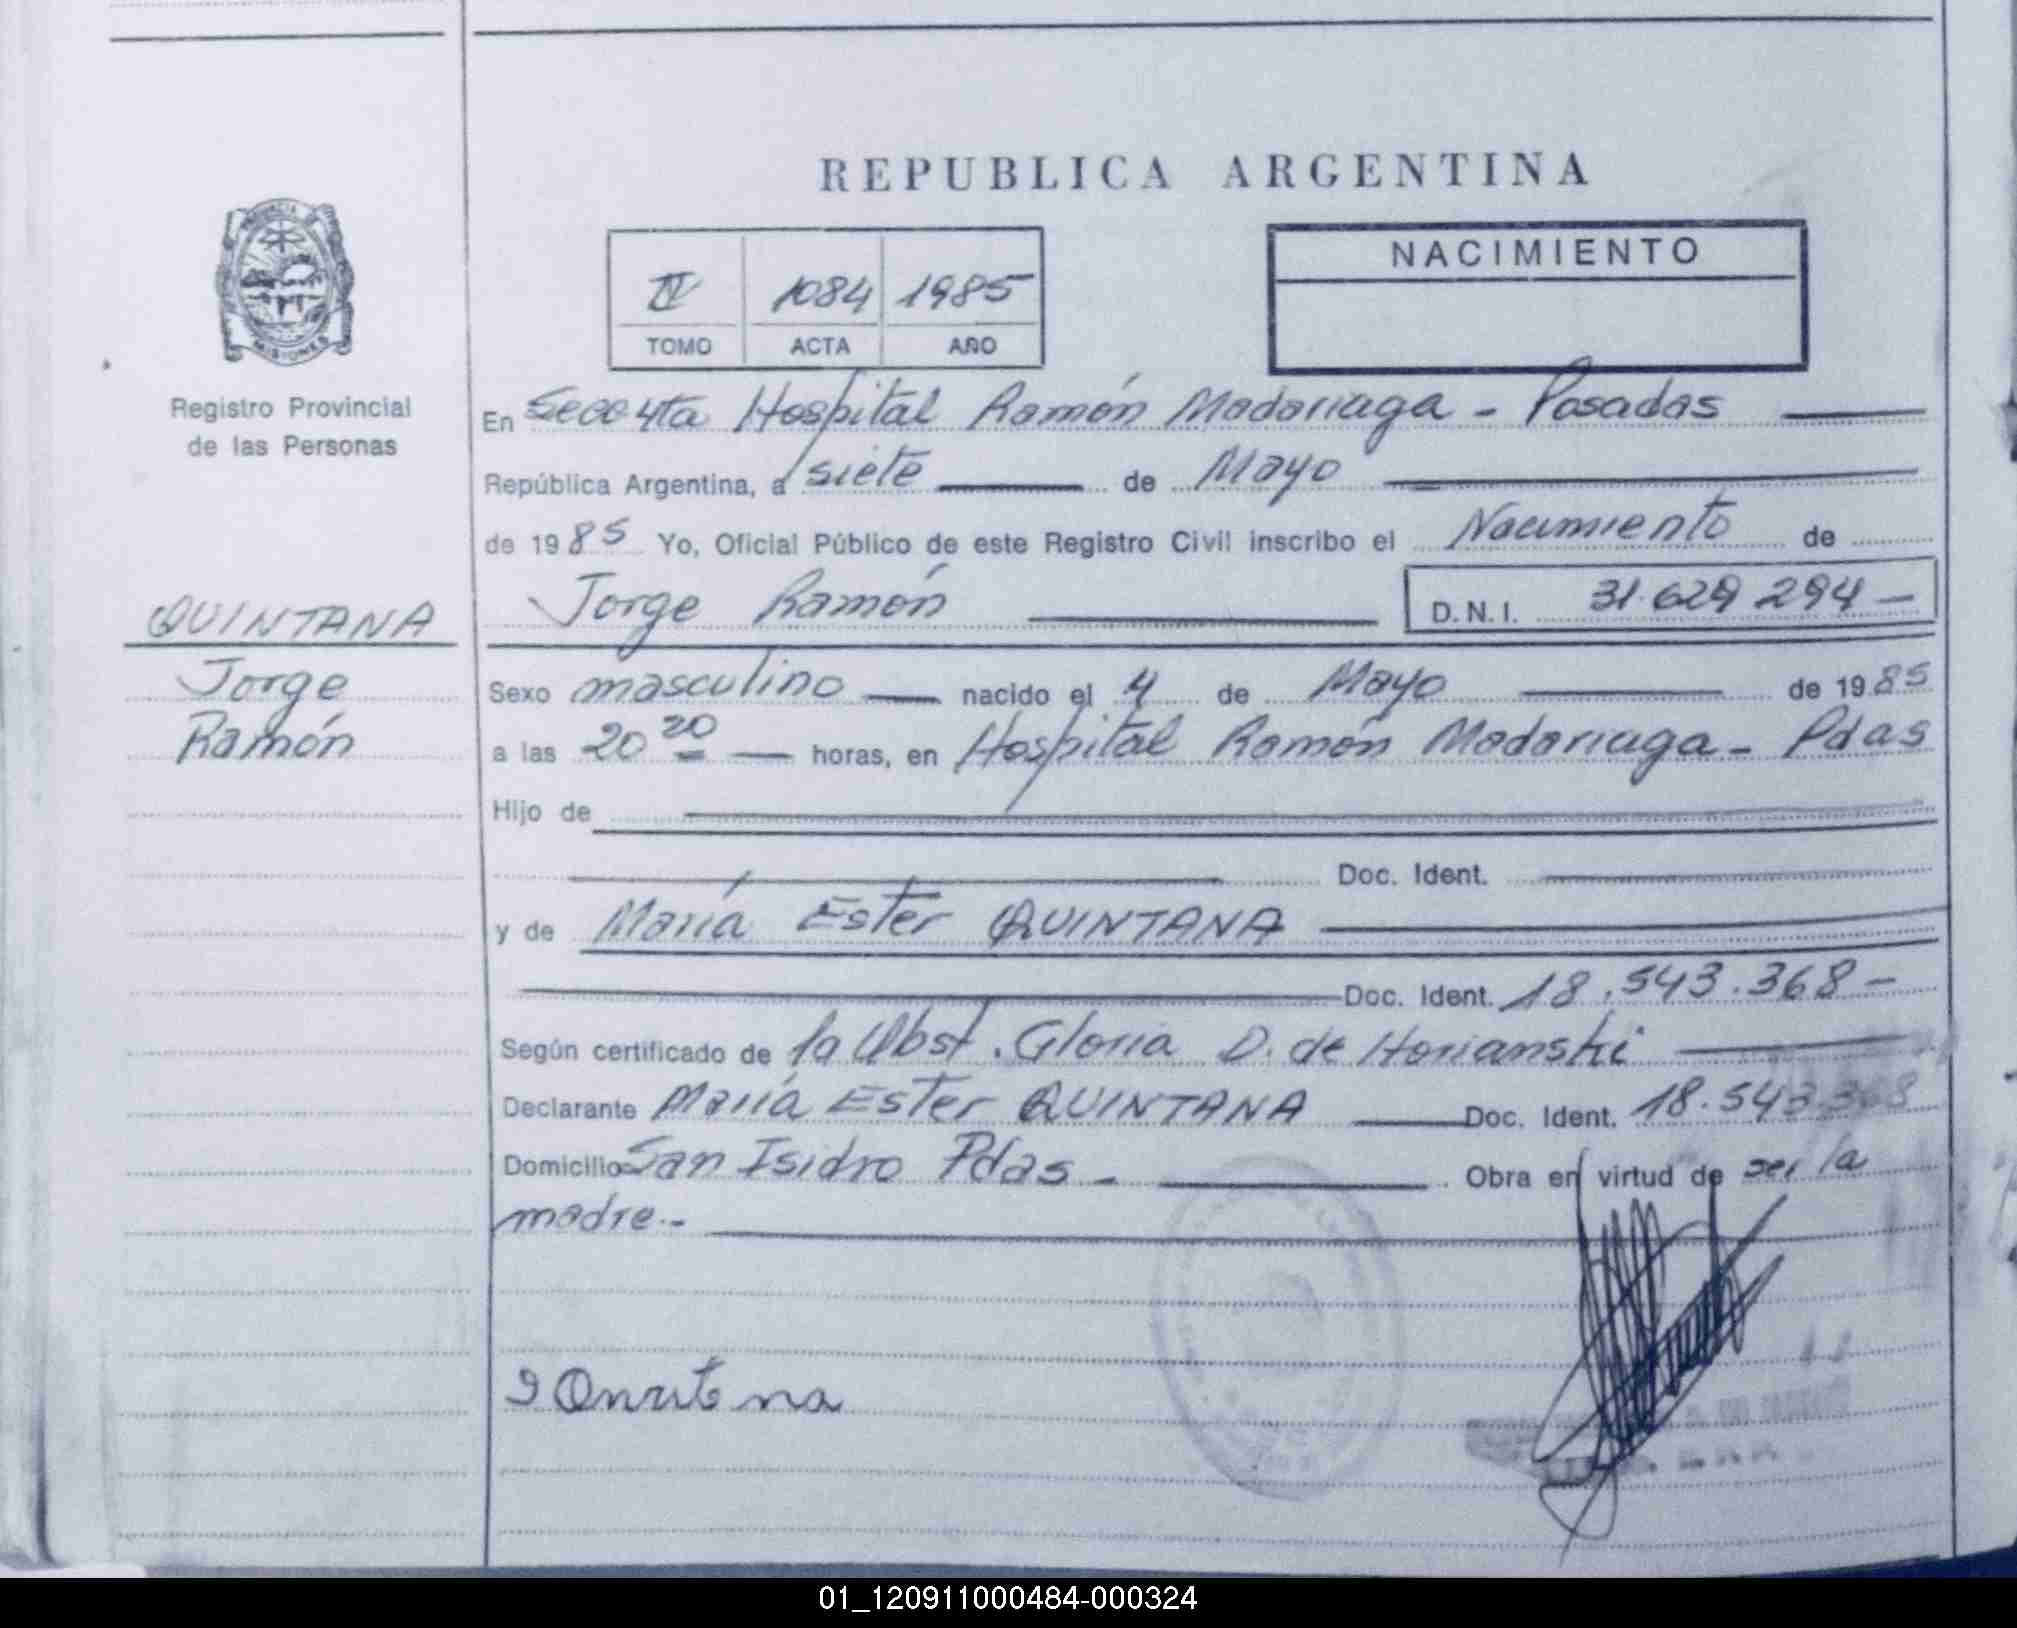 REPUBLICA ARGENTINA
PROVINCIA DE
MISIONES
Registro Provincial
de las Personas
IV 1084 1985
TOMO ACTA AÑO
NACIMIENTO
En Secc 4ta Hospital Ramón Madariaga - Posadas
República Argentina, a siete de Mayo
de 1985 Yo, Oficial Público de este Registro Civil inscribo el Nacimiento de
Jorge Ramón D.N.I. 31.629 294 -
QUINTANA
Jorge
Ramón
Sexo masculino nacido el 4 de Mayo de 1985
a las 20 20 horas, en Hospital Ramón Madariaga - Pdas
Hijo de
Doc. Ident.
y de María Ester QUINTANA
Doc. Ident. 18.543.368 -
Según certificado de la Obst. Gloria D. de Horianski
Declarante María Ester QUINTANA Doc. Ident. 18.543.368
Domicilio San Isidro Pdas - Obra en virtud de ser la
madre.-
01_120911000484-000324